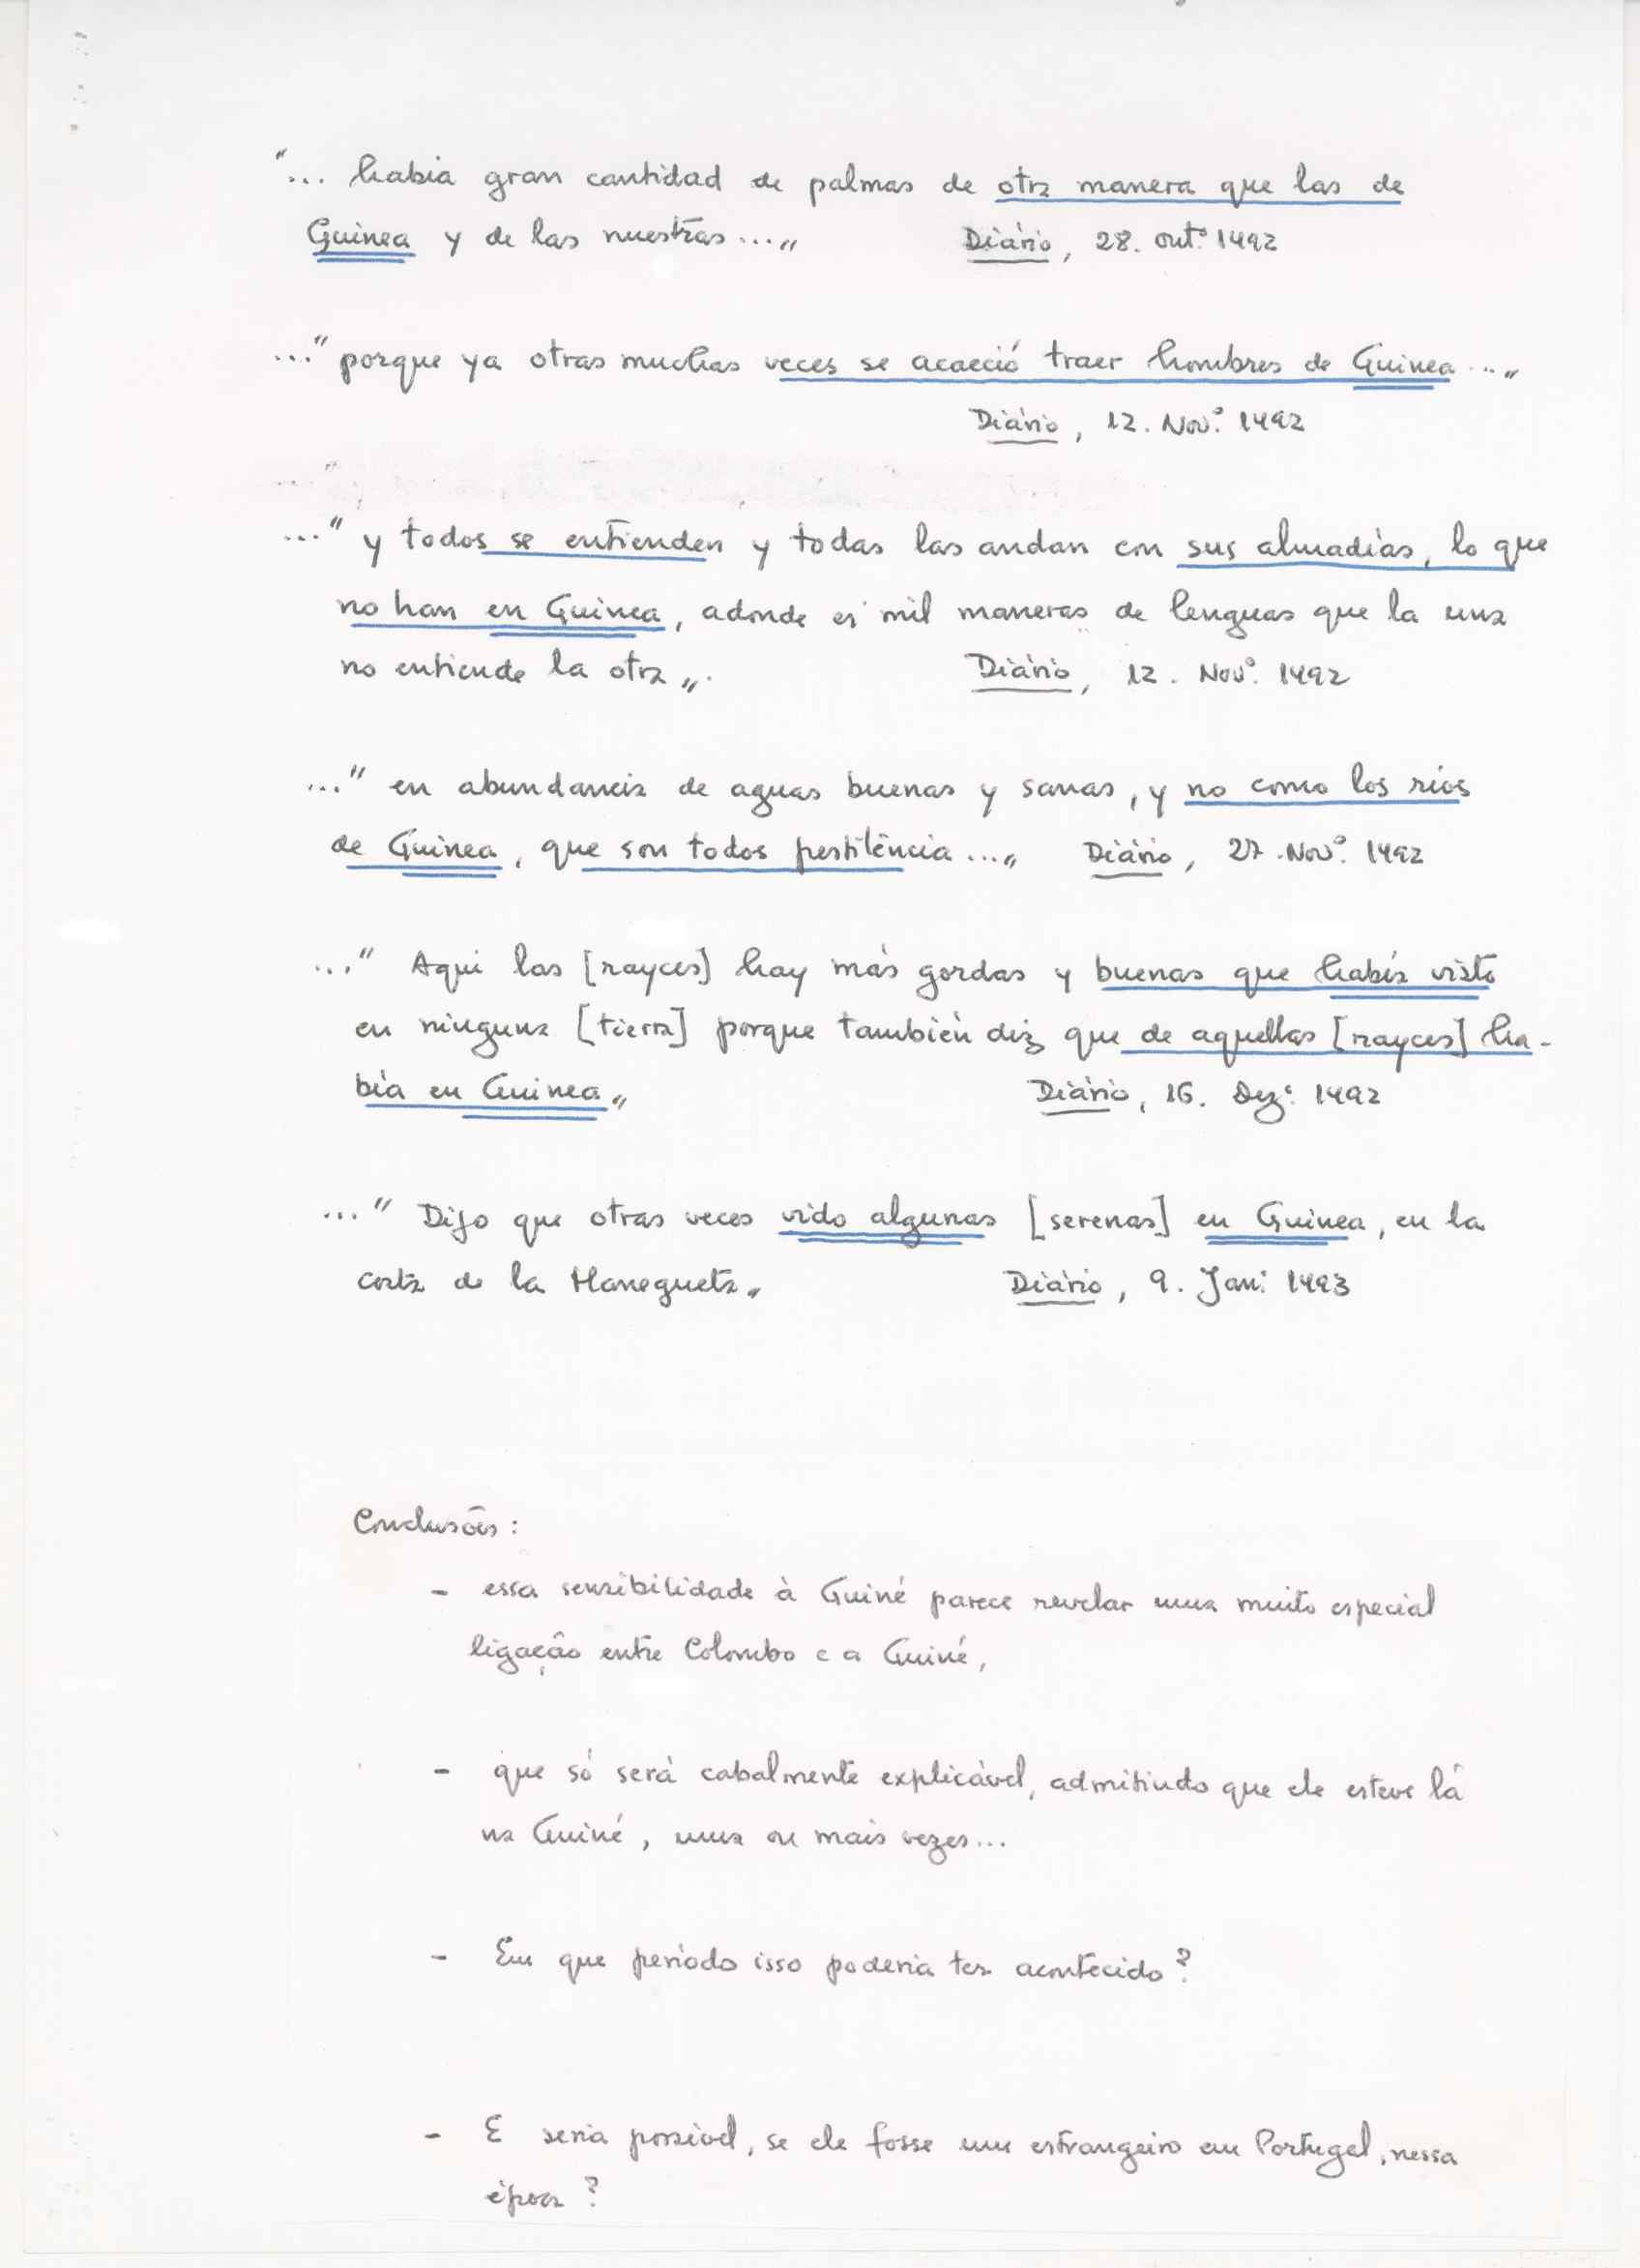 "... había gran cantidad de palmas de otra manera que las de
Guinea y de las nuestras..." Diário, 28. Outº 1492
..." porque ya otras muchas veces se acaeció traer hombres de Guinea..."
Diário, 12. Novº. 1492
..." y todos se entienden y todas las andan con sus almadías, lo que
no han en Guinea, adonde es mil maneras de lenguas que la una
no entiende la otra".
Diário, 12. Novº. 1492
..." en abundancia de aguas buenas y sanas, y no como los ríos
de Guinea, que son todos pestilência..." Diário, 27. Novº. 1492
..." Aqui las [rayces] hay más gordas y buenas que había visto
en ninguna [tierra] porque también diz que de aquellas [rayces] ha-
bía en Guinea" Diário, 16. Dezº. 1492
..." Dijo que otras veces vido algunas [serenas] en Guinea, en la
costa de la Manegueta" Diário, 9. Janº. 1493
Conclusões:
- essa sensibilidade à Guiné parece revelar uma muito especial
ligação entre Colombo e a Guiné,
- que só será cabalmente explicável, admitindo que ele esteve lá
na Guiné, uma ou mais vezes...
- Em que período isso poderia ter acontecido?
- E seria possível, se ele fosse um estrangeiro em Portugal, nessa
época?